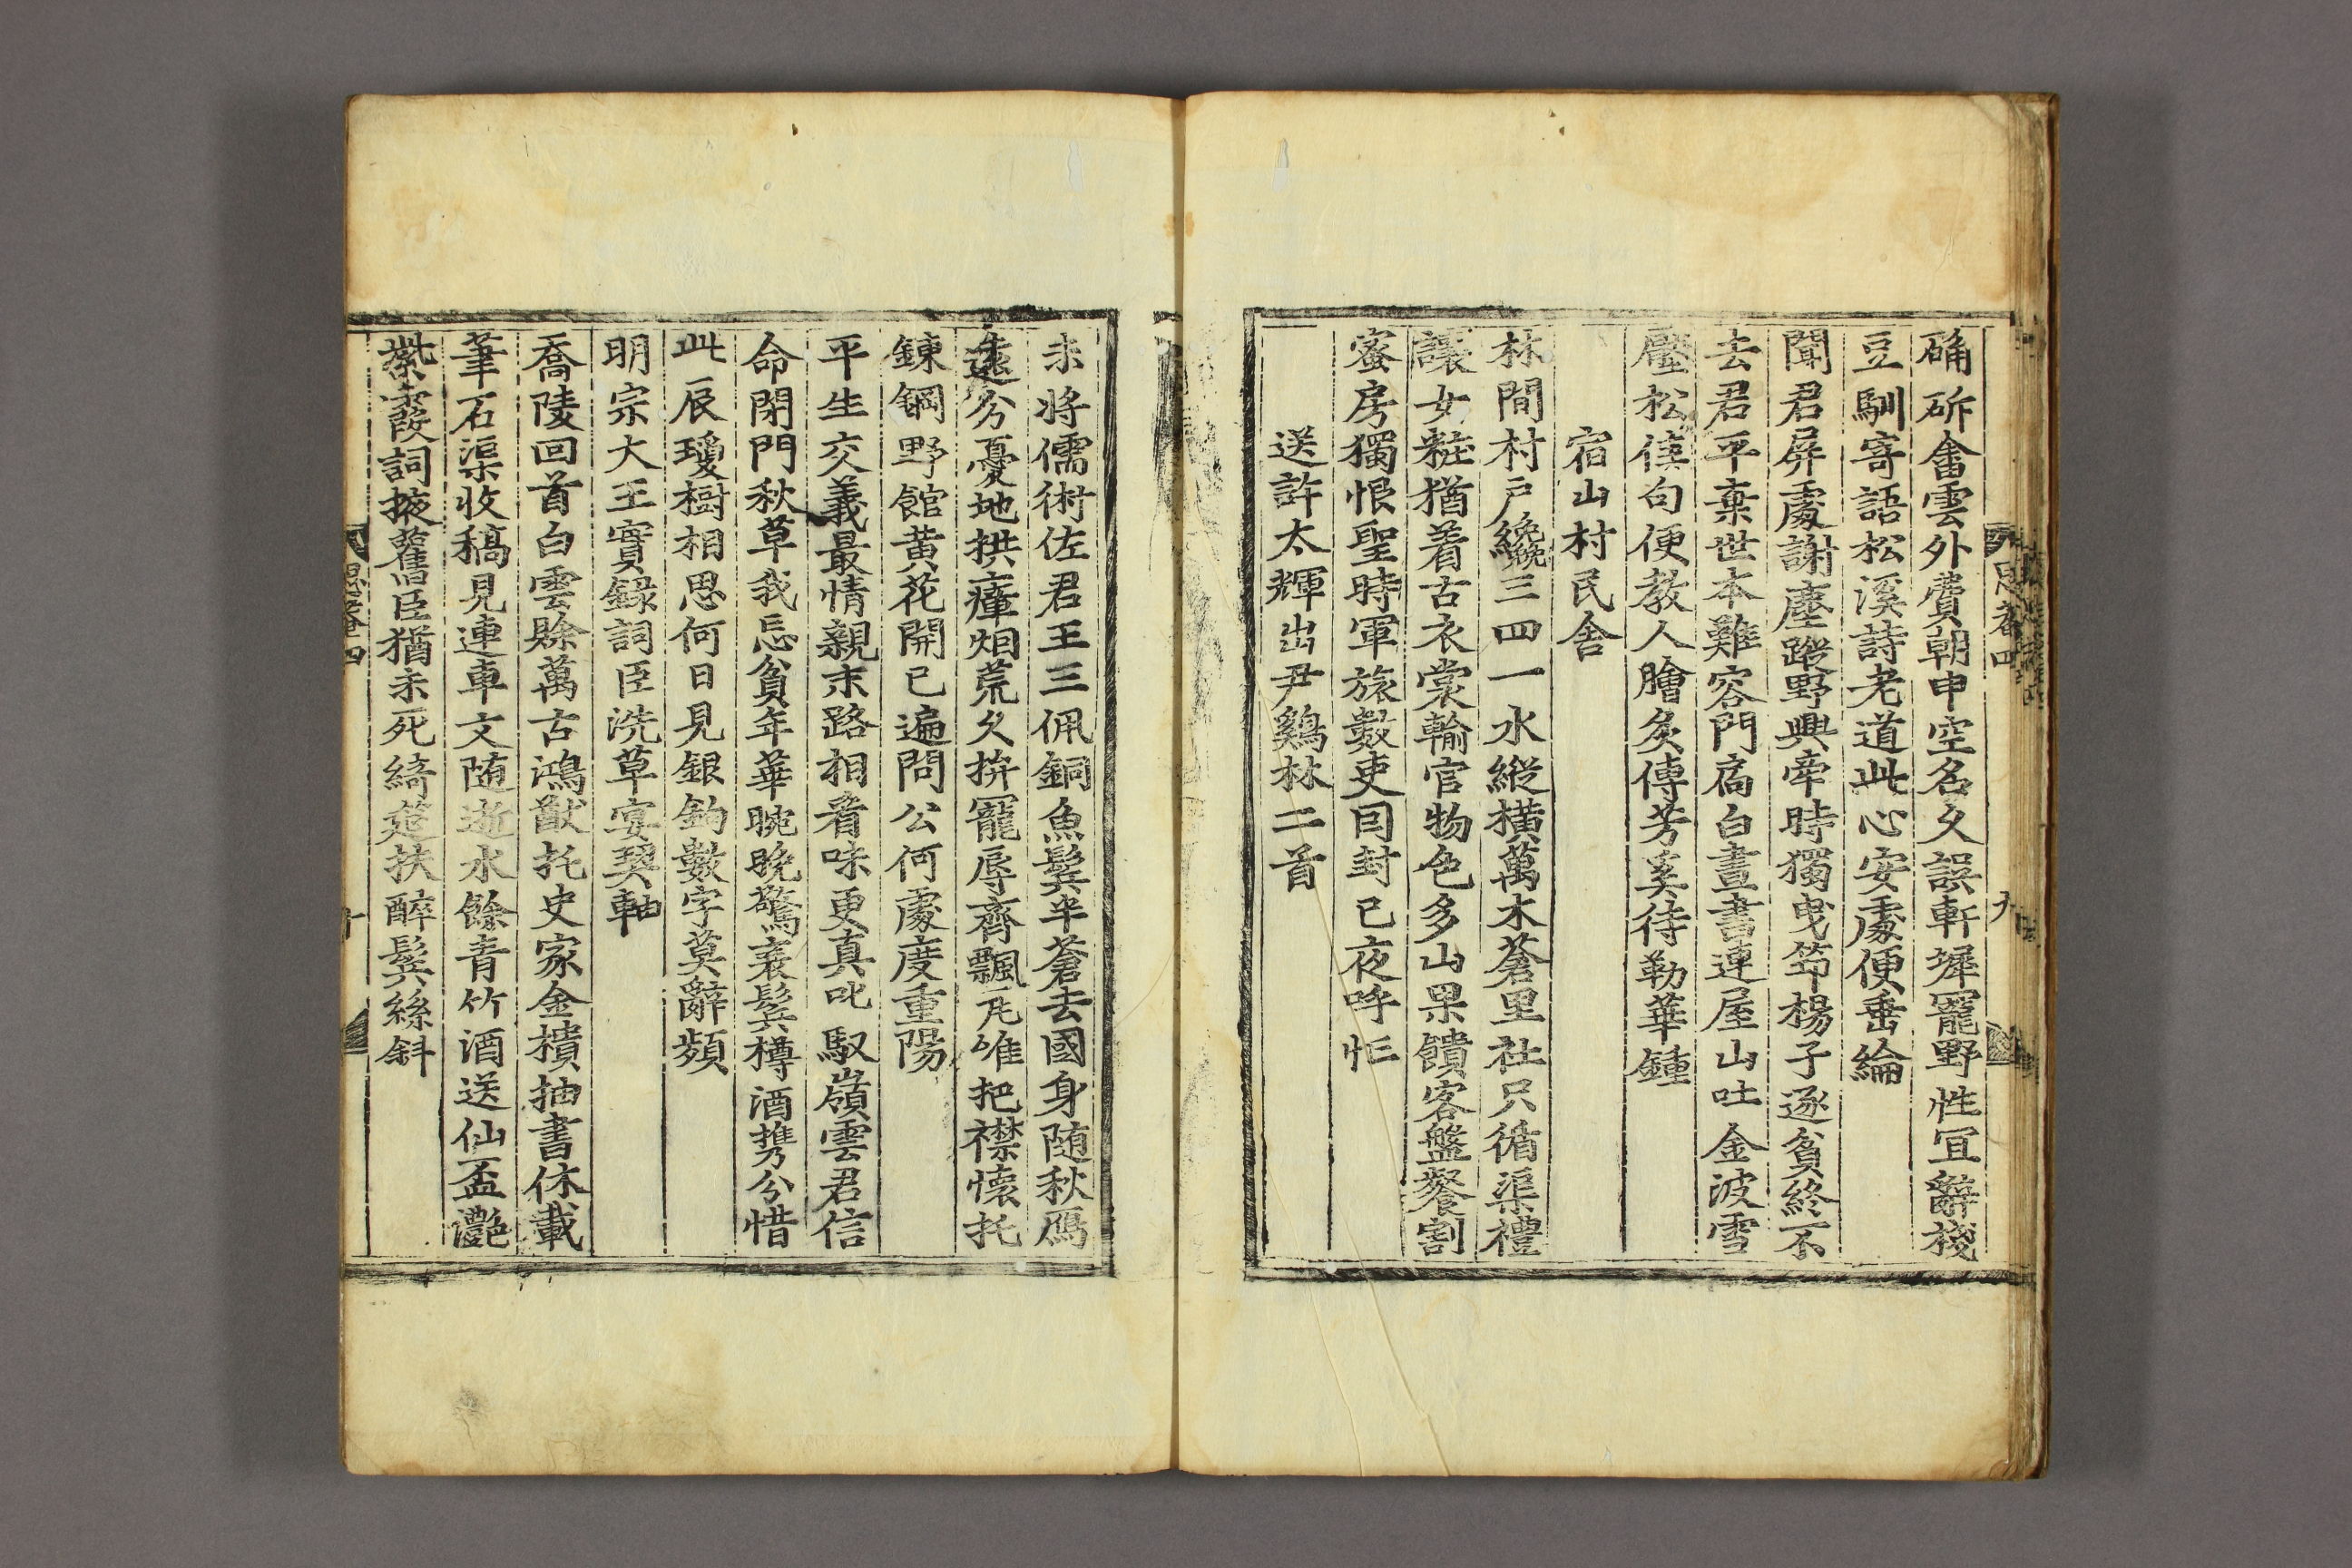 确斫畬雲外費朝申空名久誤軒墀寵野性宜辭棧
豆馴寄語松溪詩老道此心安處便垂綸
聞君屏處謝塵蹤野興牽時獨曳笻楊子逐貧終不
去君平棄世本難容門扃白晝書連屋山吐金波雪
壓松佳句便教人膾炙傳芳奚待勒華鍾
宿山村民舍
林間村戶纔三四一水縱橫萬木蒼里社只循渠禮
讓女粧猶着古衣裳輸官物色多山果饋客盤餐割
蜜房獨恨聖時軍旅數吏囘封已夜呼忙
送許太輝出尹鷄林二首
未將儒術佐君王三佩銅魚鬂半蒼去國身隨秋鴈
遠分憂地拱瘴烟荒久拚寵辱齊飄瓦唯把襟懷托
鍊鋼野館黃花開已遍問公何處度重陽
平生交義最情親末路相看味更真叱馭嶺雲君信
命閉門秋草我忘貧年華晼晚驚衰鬂樽酒携分惜
此辰瓊樹相思何日見銀鉤數字莫辭頻
明宗大王實錄詞臣洗草宴契軸
喬陵回首白雲賖萬古鴻猷托史家金樻抽書休載
筆石渠收稿見連車文随逝水餘青竹酒送仙盃灔
紫霞詞掖舊臣猶未死綺筵扶醉鬂絲斜
思菴四
思菴四 九